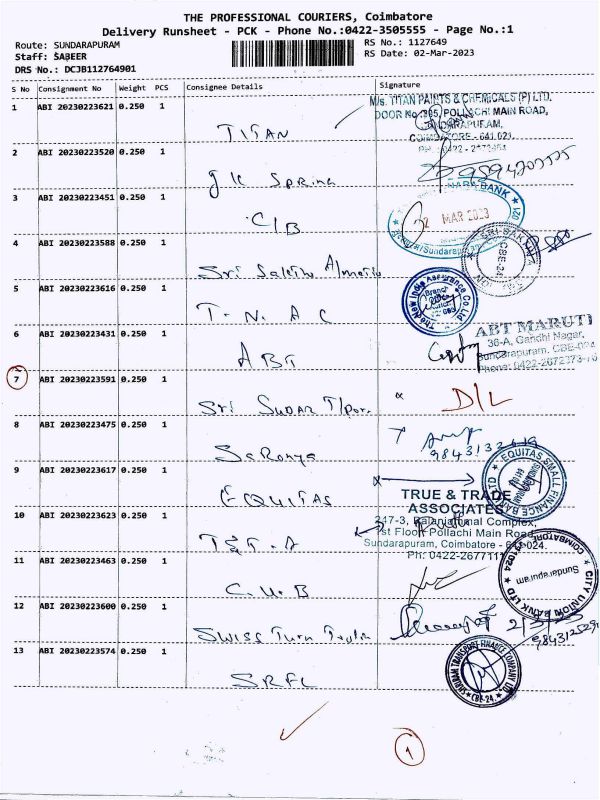 THE PROFESSIONAL COURIERS, Coimbatore
Delivery Runsheet - PCK - Phone No.:0422-3505555 - Page No.:1
Route: SUNDARAPURAM
RS No.: 1127649
Staff: SABEER
RS Date: 02-Mar-2023
DRS No.: DCJB112764901
S No Consignment No Weight PCS Consignee Details Signature
1 ABI 20230223621 0.250 1 TITAN
M/s. TITAN PAINTS & CHEMICALS (P) LTD.
DOOR No :305, POLLACHI MAIN ROAD,
SUNDARAPURAM,
COIMBATORE - 641 021
2 ABI 20230223520 0.250 1 JK Spring
3 ABI 20230223451 0.250 1 C/B
MAR 2023
4 ABI 20230223588 0.250 1 Sri
5 ABI 20230223616 0.250 1 T. N. A C
The New India Assurance Co. Ltd.
6 ABI 20230223431 0.250 1 ABT
ABT MARUTI
36-A, Gandhi Nagar,
Sundarapuram, CBE-024
7 ABI 20230223591 0.250 1 Sri SUDAR T/por. D/L
8 ABI 20230223475 0.250 1 Saranya
9 ABI 20230223617 0.250 1 EQUITAS
EQUITAS SMALL FINANCE BANK LTD
TRUE & TRADE
ASSOCIATES
247-3, Palaniammal Complex,
1st Floor, Pollachi Main Road,
Sundarapuram, Coimbatore - 641 024.
Ph: 0422-2677111
10 ABI 20230223623 0.250 1 T&T. A
11 ABI 20230223463 0.250 1 C. U. B
CITY UNION BANK LTD
Sundarapuram
12 ABI 20230223600 0.250 1 Swiss Turn
13 ABI 20230223574 0.250 1 SRFL
SRIRAM TRANSPORT FINANCE COMPANY LTD
CBE-24
1